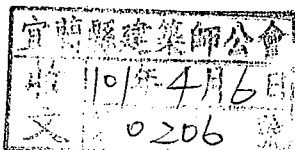 宜蘭縣建築師公會
收 101年4月6日
文 0206 號